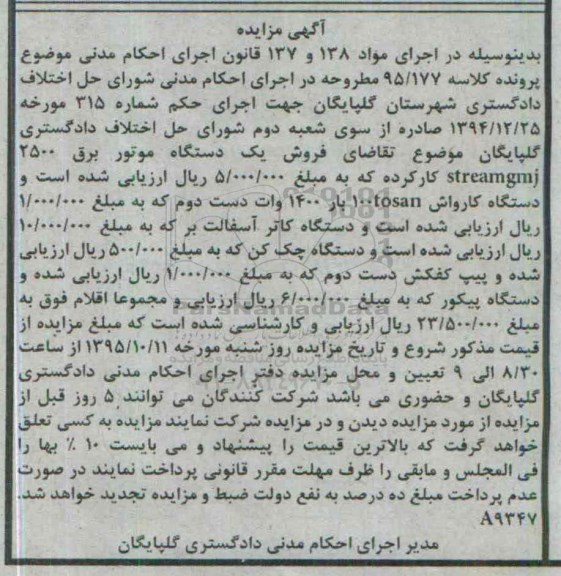 آگهی مزایده
بدینوسیله در اجرای مواد ۱۳۸ و ۱۳۷ قانون اجرای احکام مدنی موضوع
پرونده کلاسه ۹۵/۱۷۷ مطروحه در اجرای احکام مدنی شورای حل اختلاف
دادگستری شهرستان گلپایگان جهت اجرای حکم شماره ۳۱۵ مورخه
۱۳۹۴/۱۲/۲۵ صادره از سوی شعبه دوم شورای حل اختلاف دادگستری
گلپایگان موضوع تقاضای فروش یک دستگاه موتور برق ۲۵۰۰
streamgmj کارکرده که به مبلغ ۵/۰۰۰/۰۰۰ ریال ارزیابی شده است و
دستگاه کارواش ۱۰۰tosan بار ۱۴۰۰ وات دست دوم که به مبلغ ۱/۰۰۰/۰۰۰
ریال ارزیابی شده است و دستگاه کاتر آسفالت بر که به مبلغ ۱۰/۰۰۰/۰۰۰
ریال ارزیابی شده است و دستگاه چک کن که به مبلغ ۵۰۰/۰۰۰ ریال ارزیابی
شده و پیپ کفکش دست دوم که به مبلغ ۱/۰۰۰/۰۰۰ ریال ارزیابی شده و
دستگاه پیکور که به مبلغ ۶/۰۰۰/۰۰۰ ریال ارزیابی و مجموعا اقلام فوق به
مبلغ ۲۳/۵۰۰/۰۰۰ ریال ارزیابی و کارشناسی شده است که مبلغ مزایده از
قیمت مذکور شروع و تاریخ مزایده روز شنبه مورخه ۱۳۹۵/۱۰/۱۱ از ساعت
۸/۳۰ الی ۹ تعیین و محل مزایده دفتر اجرای احکام مدنی دادگستری
گلپایگان و حضوری می باشد شرکت کنندگان می توانند ۵ روز قبل از
مزایده از مورد مزایده دیدن و در مزایده شرکت نمایند مزایده به کسی تعلق
خواهد گرفت که بالاترین قیمت را پیشنهاد و می بایست ۱۰ ٪ بها را
فی المجلس و مابقی را ظرف مهلت مقرر قانونی پرداخت نمایند در صورت
عدم پرداخت مبلغ ده درصد به نفع دولت ضبط و مزایده تجدید خواهد شد.
A۹۳۴۷
مدیر اجرای احکام مدنی دادگستری گلپایگان
ParsNamadData